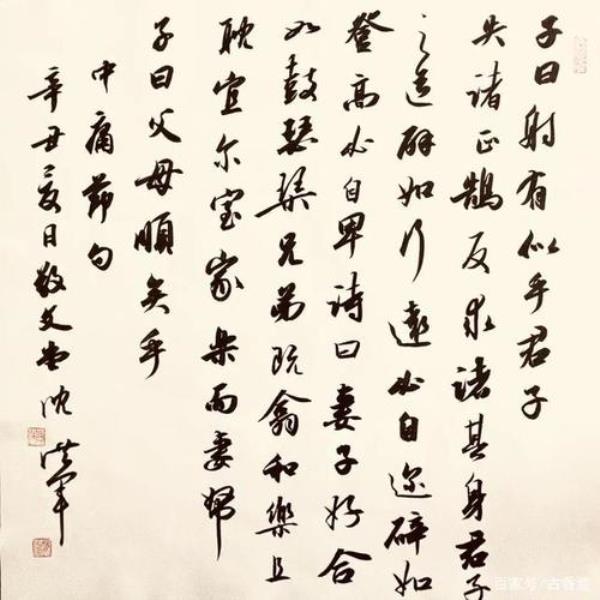 子曰射有似乎君子
失诸正鵠反求诸其身君子
之道辟如行遠必自迩辟如
登高必自卑诗曰妻子好合
如鼓瑟琴兄弟既翕和樂且
耽宜尔室家樂而妻帑
子曰父母順矣乎
中庸節句
辛丑夏日敬文堂沈洪軍
百家号/古香